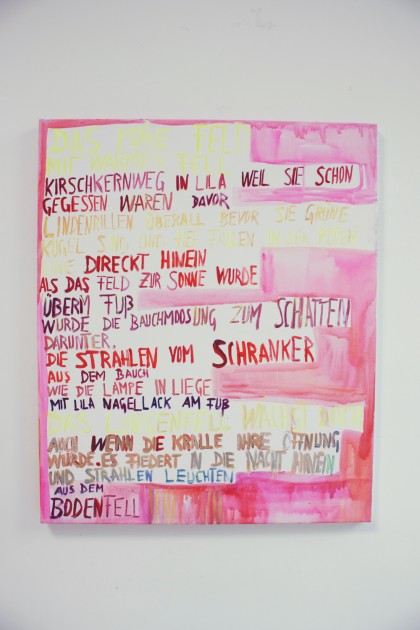 DAS FELD
MIT
KIRSCHKERNWEG IN LILA WEIL SIE SCHON
GEGESSEN WAREN DAVOR
LINDENRILLEN ÜBERALL BEVOR SIE GRÜNE
KUGEL SIND UND
DIRECKT HINEIN
ALS DAS FELD ZUR SONNE WURDE
ÜBERM FUß
WURDE DIE BAUCHMOOSUNG ZUM SCHATTEN
DARUNTER.
DIE STRAHLEN VOM SCHRANKER
AUS DEM BAUCH
WIE DIE LAMPE IN LIEGE
MIT LILA NAGELLACK AM FUß
DAS LINDENFELL WÄCHST
AUCH WENN DIE KRALLE IHRE ÖFFNUNG
WURDE. ES FIEDERT IN DIE NACHT HINEIN
UND STRAHLEN LEUCHTEN
AUS DEM
BODENFELL